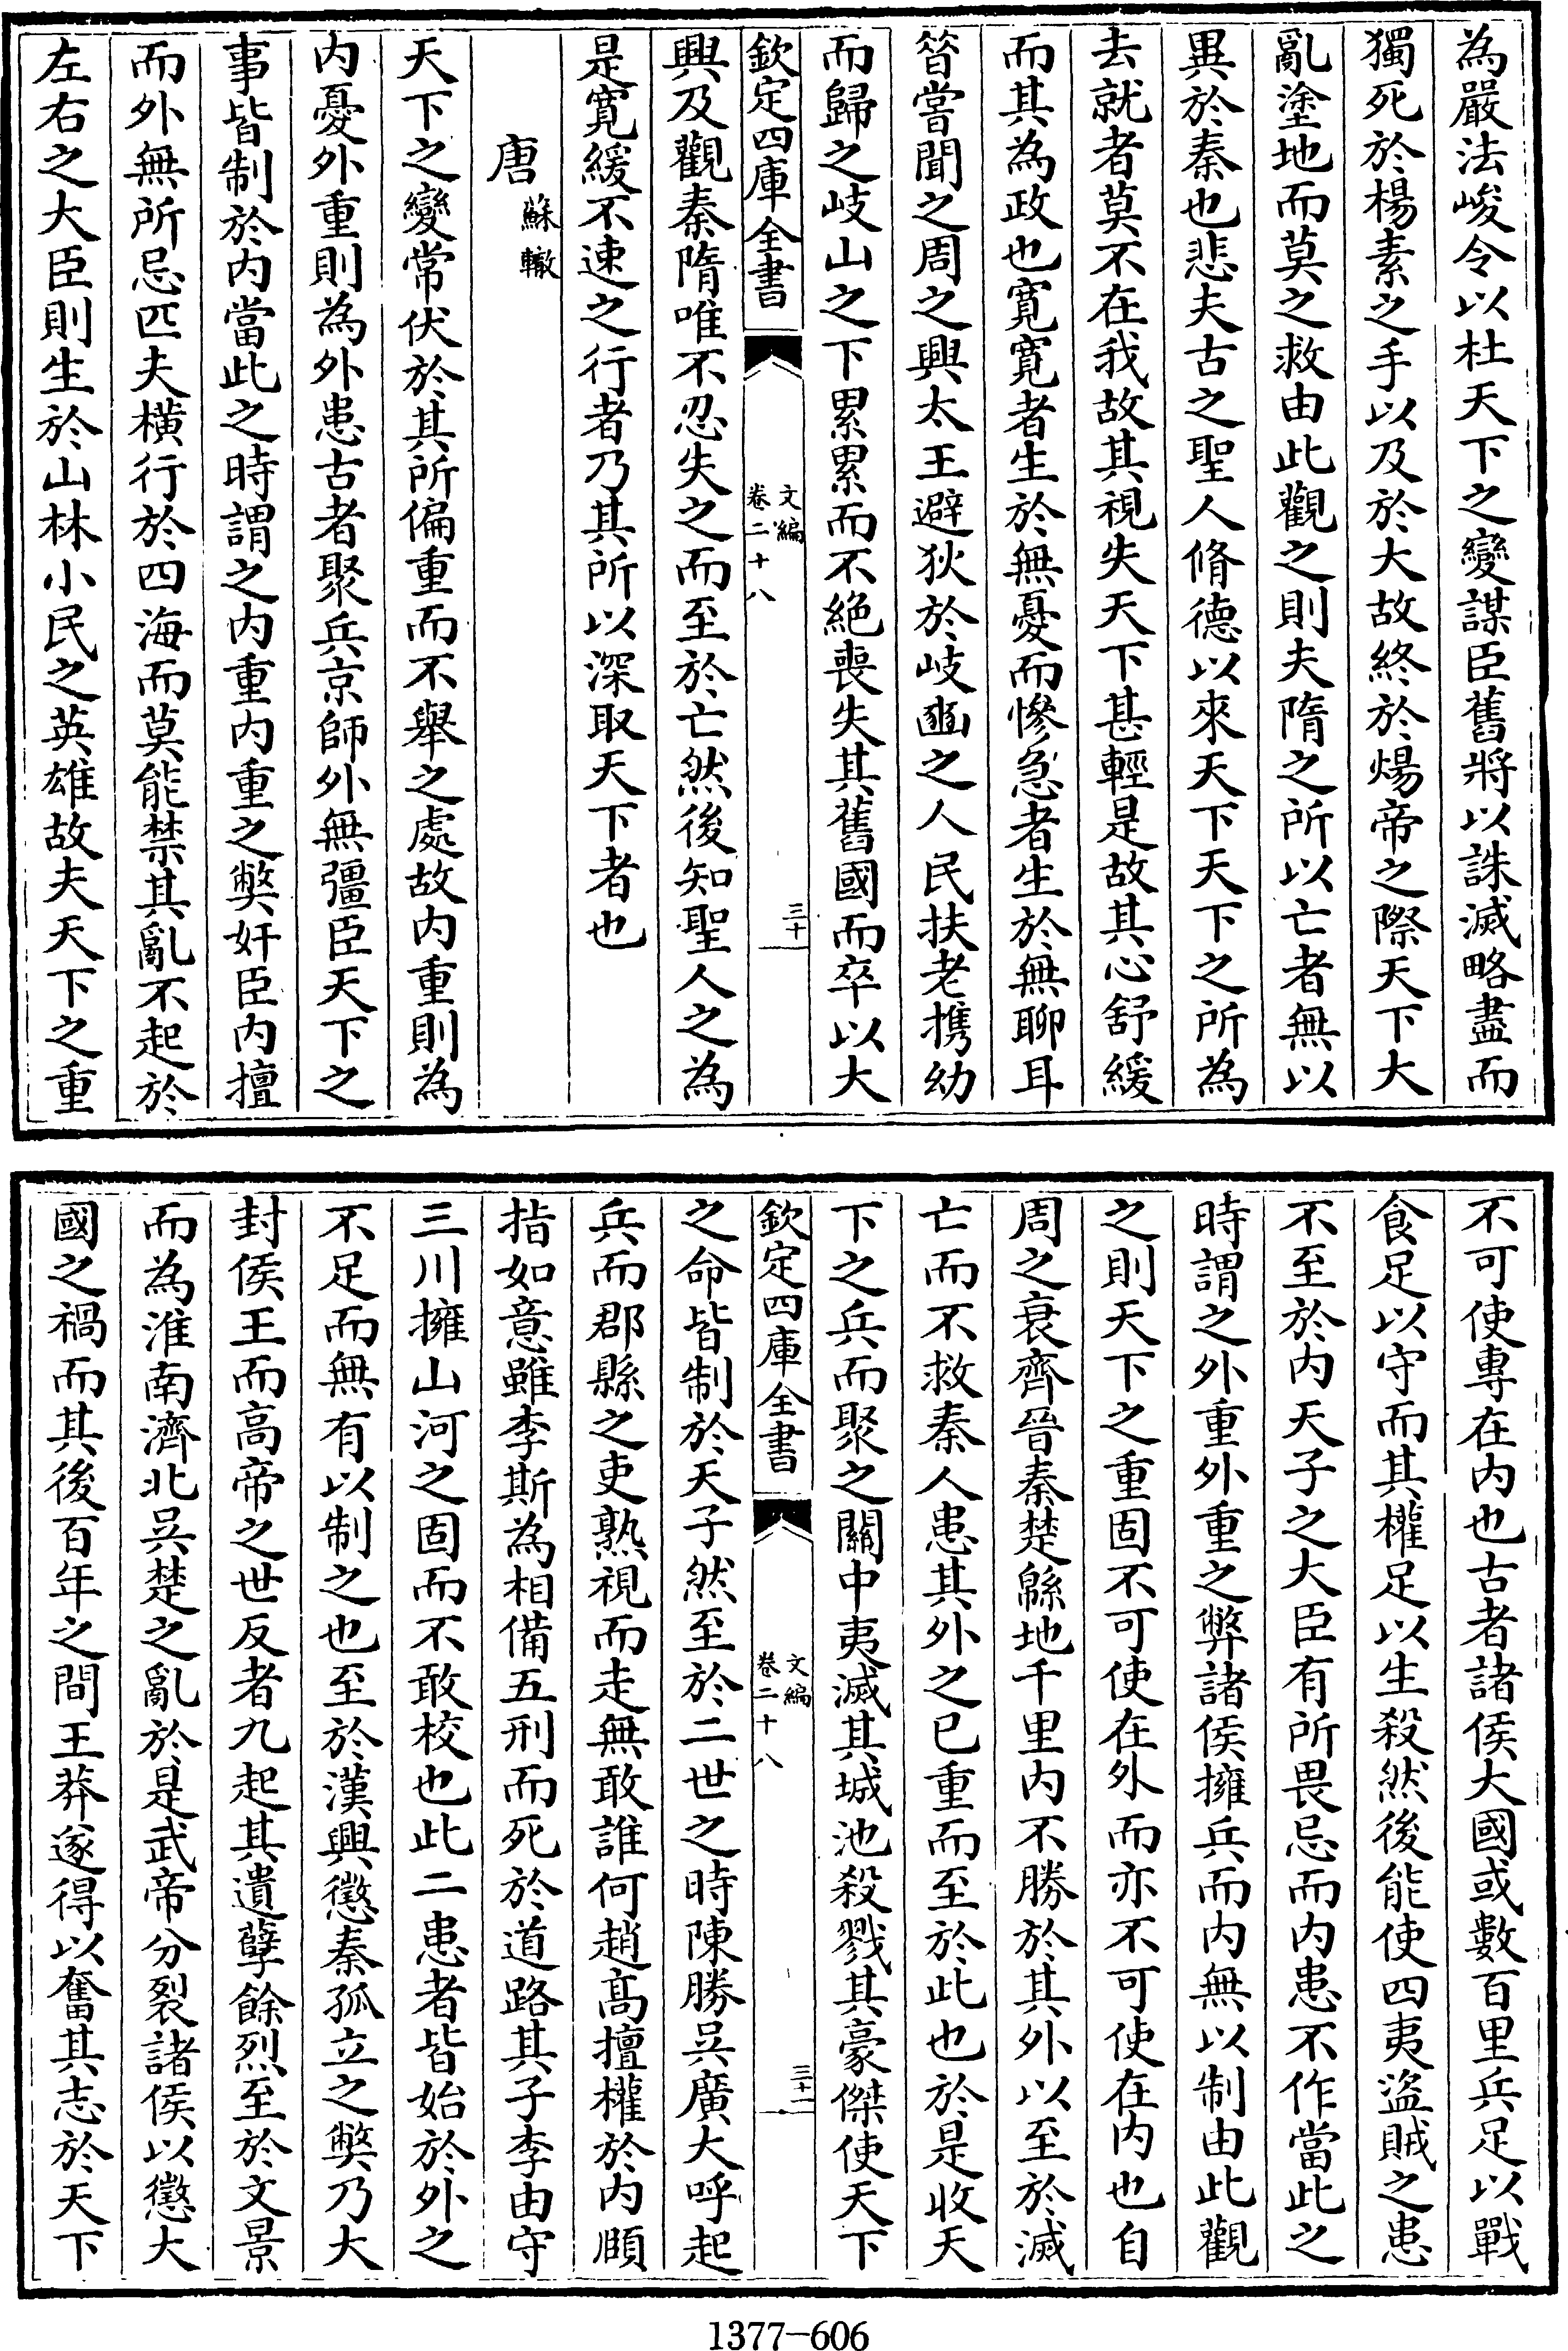 為嚴法峻令以杜天下之變謀臣舊將以誅滅略盡而
獨死於楊素之手以及於大故終於煬帝之際天下大
亂塗地而莫之救由此觀之則夫隋之所以亡者無以
異於秦也悲夫古之聖人脩德以來天下天下之所為
去就者莫不在我故其視失天下甚輕是故其心舒緩
而其為政也寛寛者生於無憂而慘急者生於無聊耳
昔嘗聞之周之興太王避狄於岐豳之人民扶老携幼
而歸之岐山之下累累而不絶喪失其舊國而卒以大
欽定四庫全書
文編
卷二十八
三十
興及觀秦隋唯不忍失之而至於亡然後知聖人之為
是寛緩不速之行者乃其所以深取天下者也
唐
蘇轍
天下之變常伏於其所偏重而不舉之處故内重則為
内憂外重則為外患古者聚兵京師外無彊臣天下之
事皆制於内當此之時謂之内重内重之獘奸臣内擅
而外無所忌匹夫横行於四海而莫能禁其亂不起於
左右之大臣則生於山林小民之英雄故夫天下之重
不可使專在内也古者諸侯大國或數百里兵足以戰
食足以守而其權足以生殺然後能使四夷盜賊之患
不至於内天子之大臣有所畏忌而内患不作當此之
時謂之外重外重之弊諸侯擁兵而内無以制由此觀
之則天下之重固不可使在外而亦不可使在内也自
周之衰齊晉秦楚緜地千里内不勝於其外以至於滅
亡而不救秦人患其外之已重而至於此也於是收天
下之兵而聚之關中夷滅其城池殺戮其豪傑使天下
欽定四庫全書
文編
卷二十八
三十一
之命皆制於天子然至於二世之時陳勝吳廣大呼起
兵而郡縣之吏熟視而走無敢誰何趙高擅權於内頤
指如意雖李斯為相備五刑而死於道路其子李由守
三川擁山河之固而不敢校也此二患者皆始於外之
不足而無有以制之也至於漢興懲秦孤立之獘乃大
封侯王而高帝之世反者九起其遺孽餘烈至於文景
而為淮南濟北吳楚之亂於是武帝分裂諸侯以懲大
國之禍而其後百年之間王莽遂得以奮其志於天下
1377-606